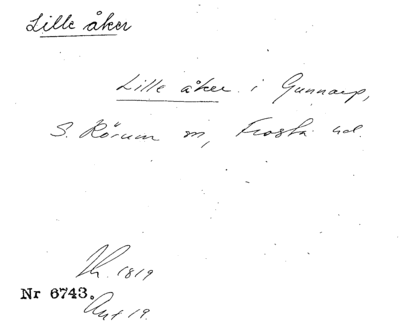 Lille åker
Lille åker i Gunnarp,
S. Rörum sn, Frosta hd
Th. 1819
Nr 6743.
Akt 19.